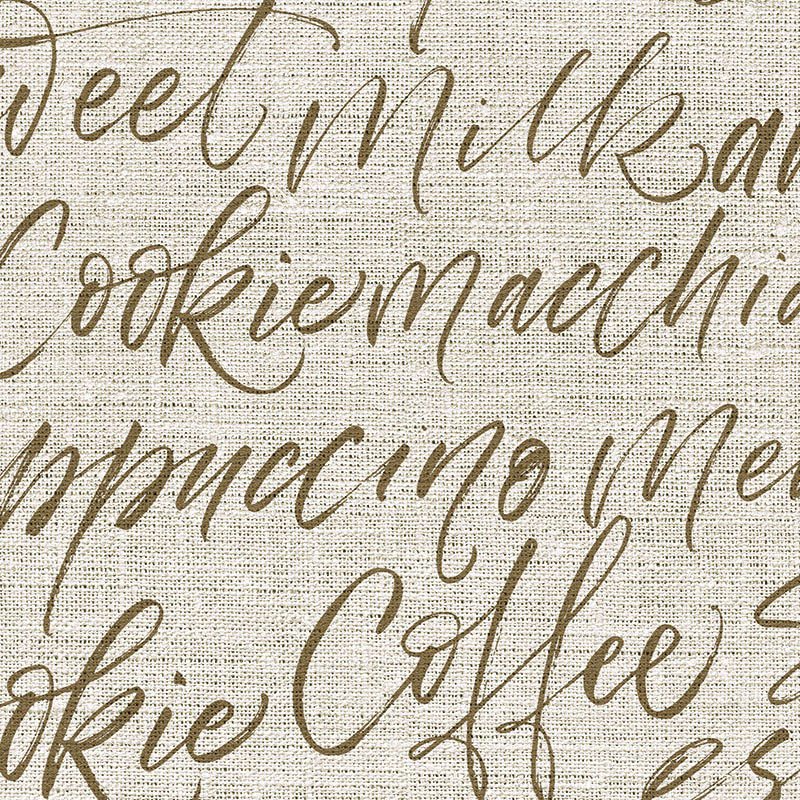 weet Milk an
Cookie macchia
ppuccino Me
Coffee
okie
es